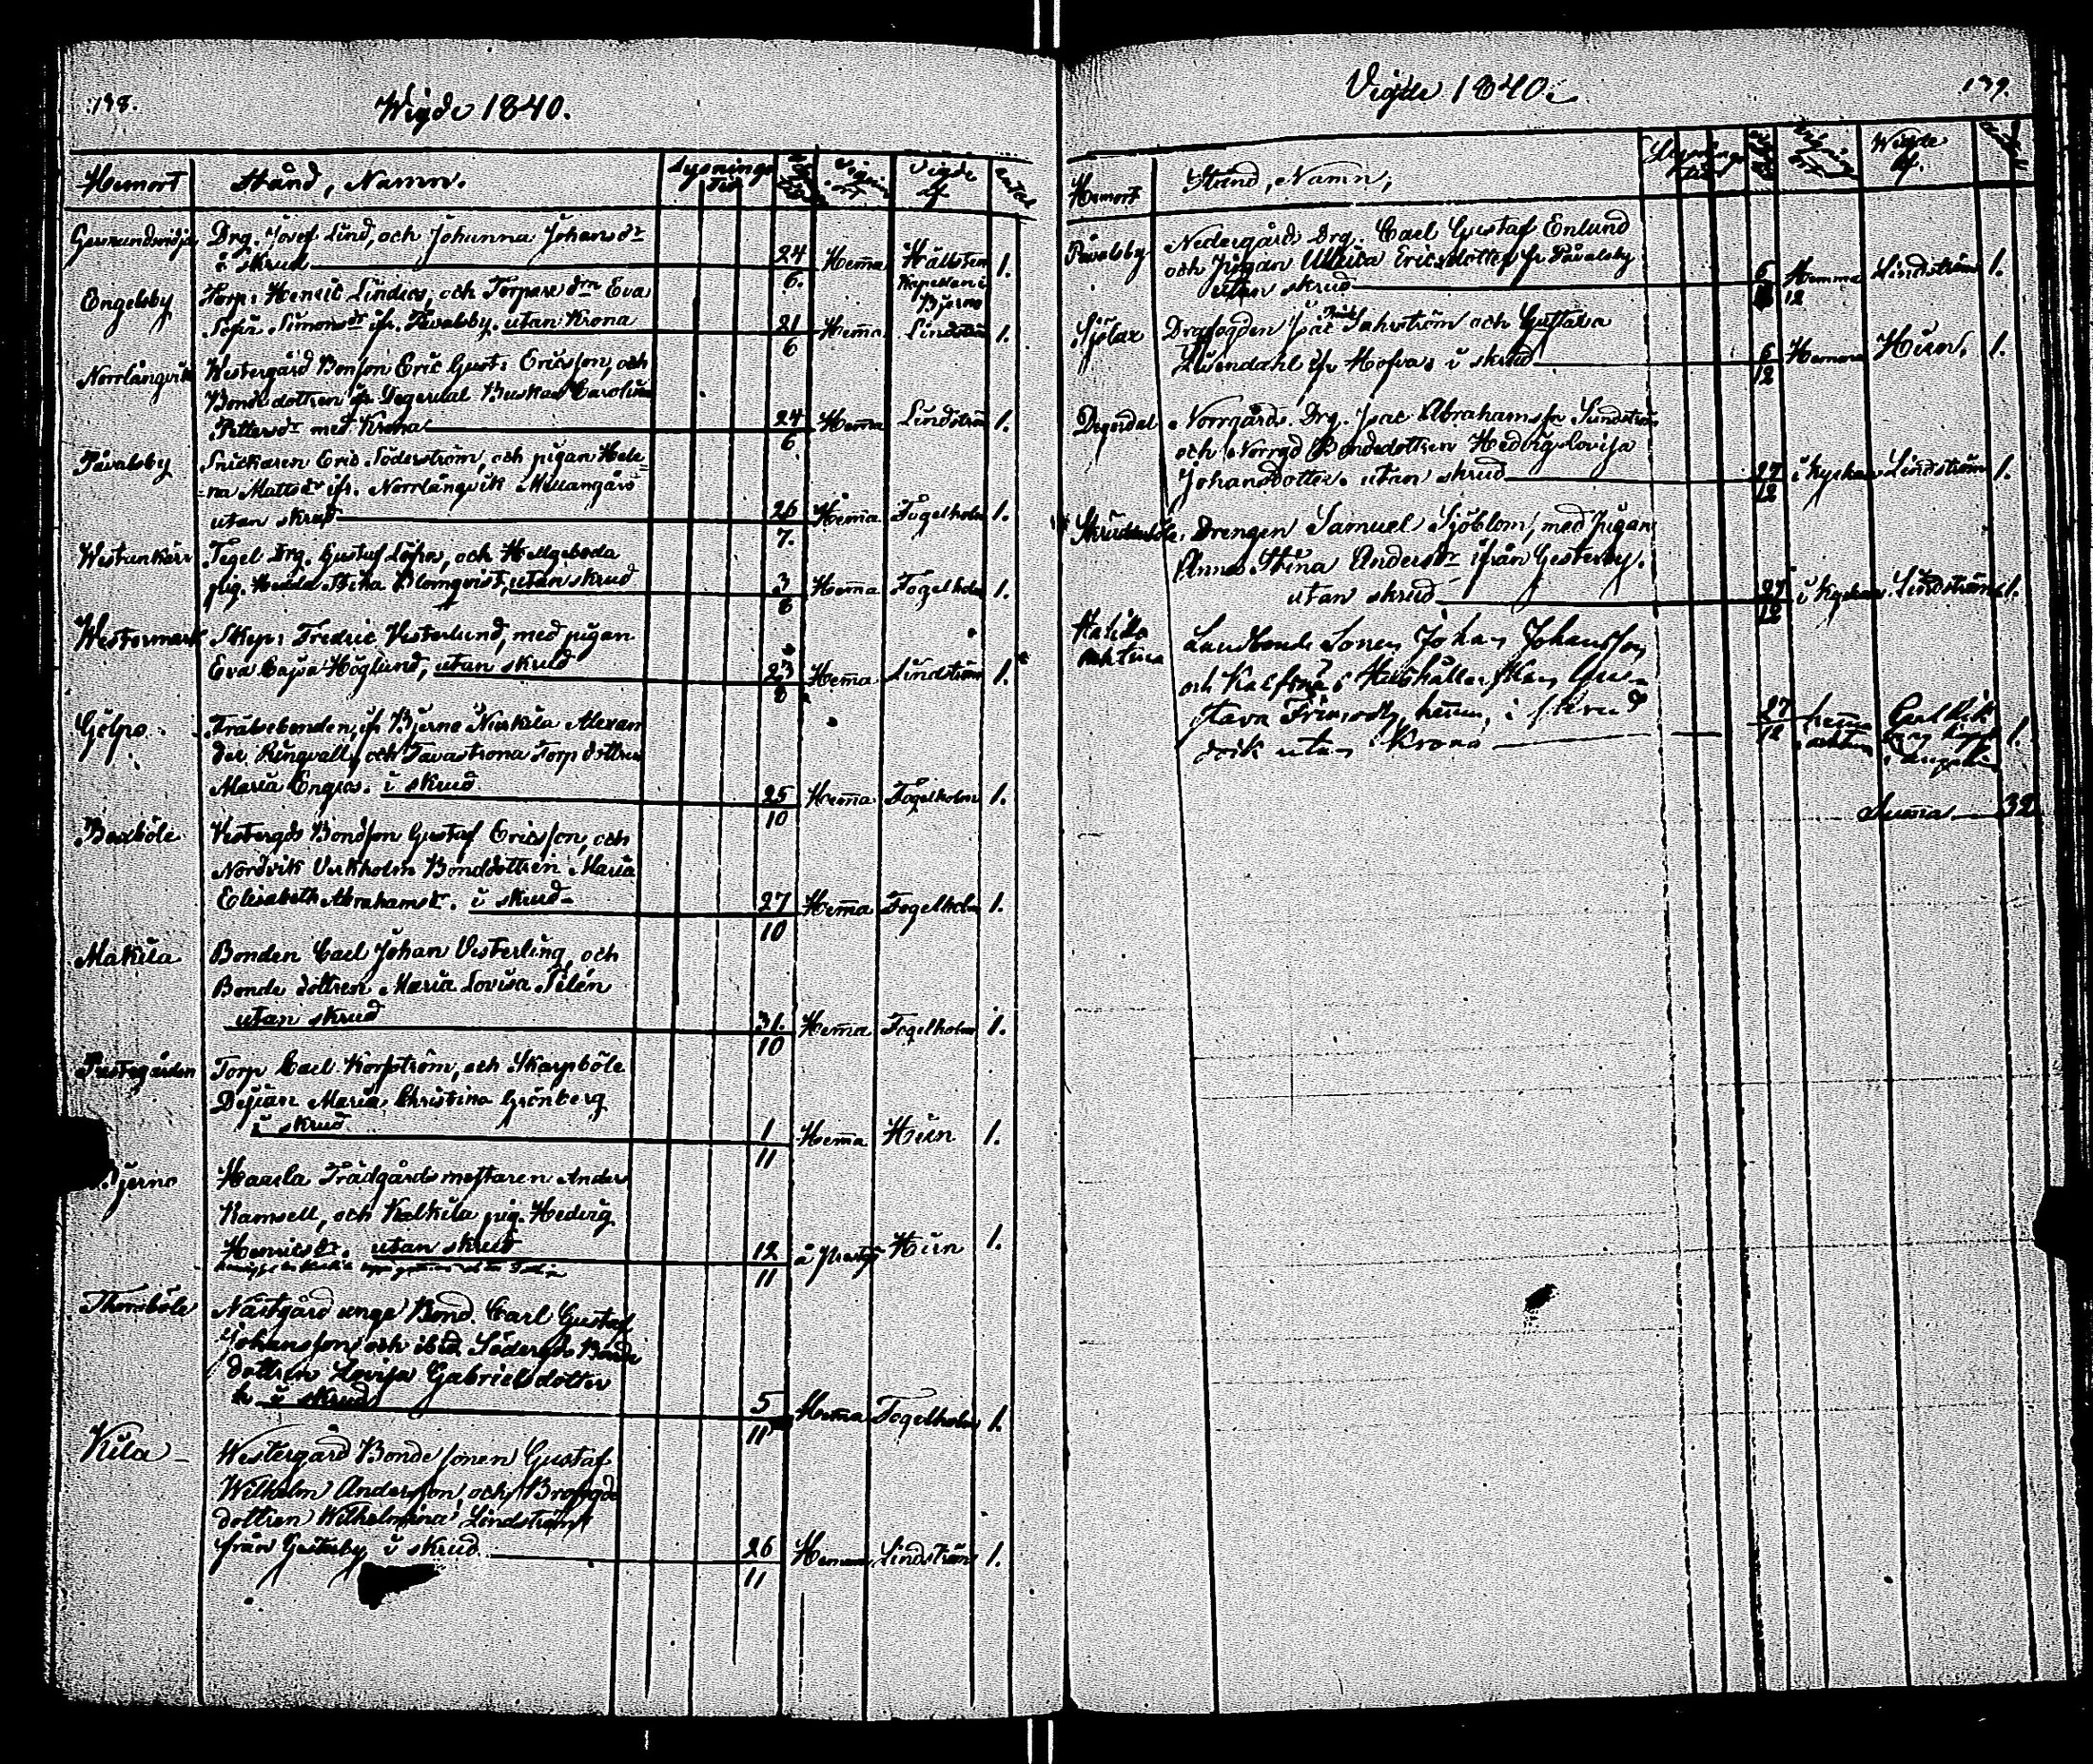 198.
Wigde 1840.
Hemort Stånd, Namn. Lysnings Tid Vigde af Antal
Drg. Josef Lind, och Johanna Johansdr
i skrud 24/6. Hema Hällsten 1.
Kapellan i
Bjerno
Engelsby Torp: Henric Linders, och Torpare dm Eva
Sofia Simonsdr ifr. Påvalsby. utan Krona 21/6 Hema Lindström 1.
Norrlångvik Westergård Bonson Eric Gust: Ericsson, och
Bonde dottren ifr Degerdal Buskas Carolina
Pettersdr med Krona 24/6 Hema Lindström 1.
Påvalsby Snickaren Eric Söderström, och pigan Hele=
=na Mattsdr ifr. Norrlångvik Mellangård
utan skrud 26/7. Hema Fogelholm 1.
Westankärr Tegel Drg. Gustaf Löfros, och Helgeboda
pig. Hedda Stina Blomqvist, utan skrud 3/8 Hema Fogelholm 1.
Westermark Skep: Fredric Vesterlund, med pigan
Eva Cajsa Höglund, utan skrud 23/8 Hema Lindström 1.
Gölpo Fräbebonden, ifr Bjerno Niskila Alexan
der Ringvall, och Tavastrona Torp dottren
Maria Engros. i skrud 25/10 Hema Fogelholm 1.
Boxböle Vestergds Bondson Gustaf Ericsson, och
Nordvik Verkholm Bonddottren Maria
Elisabeth Abrahamsdr. i skrud 27/10 Hema Fogelholm 1.
Makila Bonden Carl Johan Vesterling, och
Bonde dottren Maria Lovisa Silén
utan skrud 31./10 Hema Fogelholm 1.
Prestegården Torp Carl Korpström, och Skarpböle
Dejian Maria Christina Grönberg
i skrud 1/11 Hema Hün 1.
Bjerno Haarla Trädgårdsmestaren Anders
Ramsell, och Kalkila pig. Hedvig
Henricsdr. utan skrud 12/11 å Prestg Hün 1.
Thomsböle Nästgård unge Bond. Carl Gustaf
Johansson och ibid Södergds Bonde
dottren Lovisa Gabrielsdotter
i skrud 5/11 Hema Fogelholm 1.
Kila Westergård Bonde sonen Gustaf
Wilhelm Andersson och
dottren Wilhelmina Lindström
från Gesterby i skrud 26/11 Hemma Lindström 1.
Vigde 1840. 199.
Hemort Stånd, Namn, Wigde af.
Påvalsby Nedergårds Drg. Carl Gustaf Enlund
och Pigan Ulrica Ericsdotter fr Påvalsby
utan skrud 6/12 Hemma Lindström 1.
Sjölax Drgfogden Isac Sahrström och Gustava
Lilendahl ifr Hofva i skrud 6/12 Hemma Hün. 1.
Degerdal Norrgårds. Drg. Isac Abrahamsson Sundström
och Norrgd Bondedottren Hedvig Lovisa
Johansdotter. utan skrud 27/12 i Kyrkan Lindström 1.
Drengen Samuel Sjöblom, med Pigan
Anna Stina Andersdr ifrån Gesterby.
utan skrud 27/12 i Kyrkan Lindström 1.
Landbonde Sonen Johan Johansson
och Hushållerskan Gus-
tava i skrud
utan Krona 27/12 1.
Suma 32